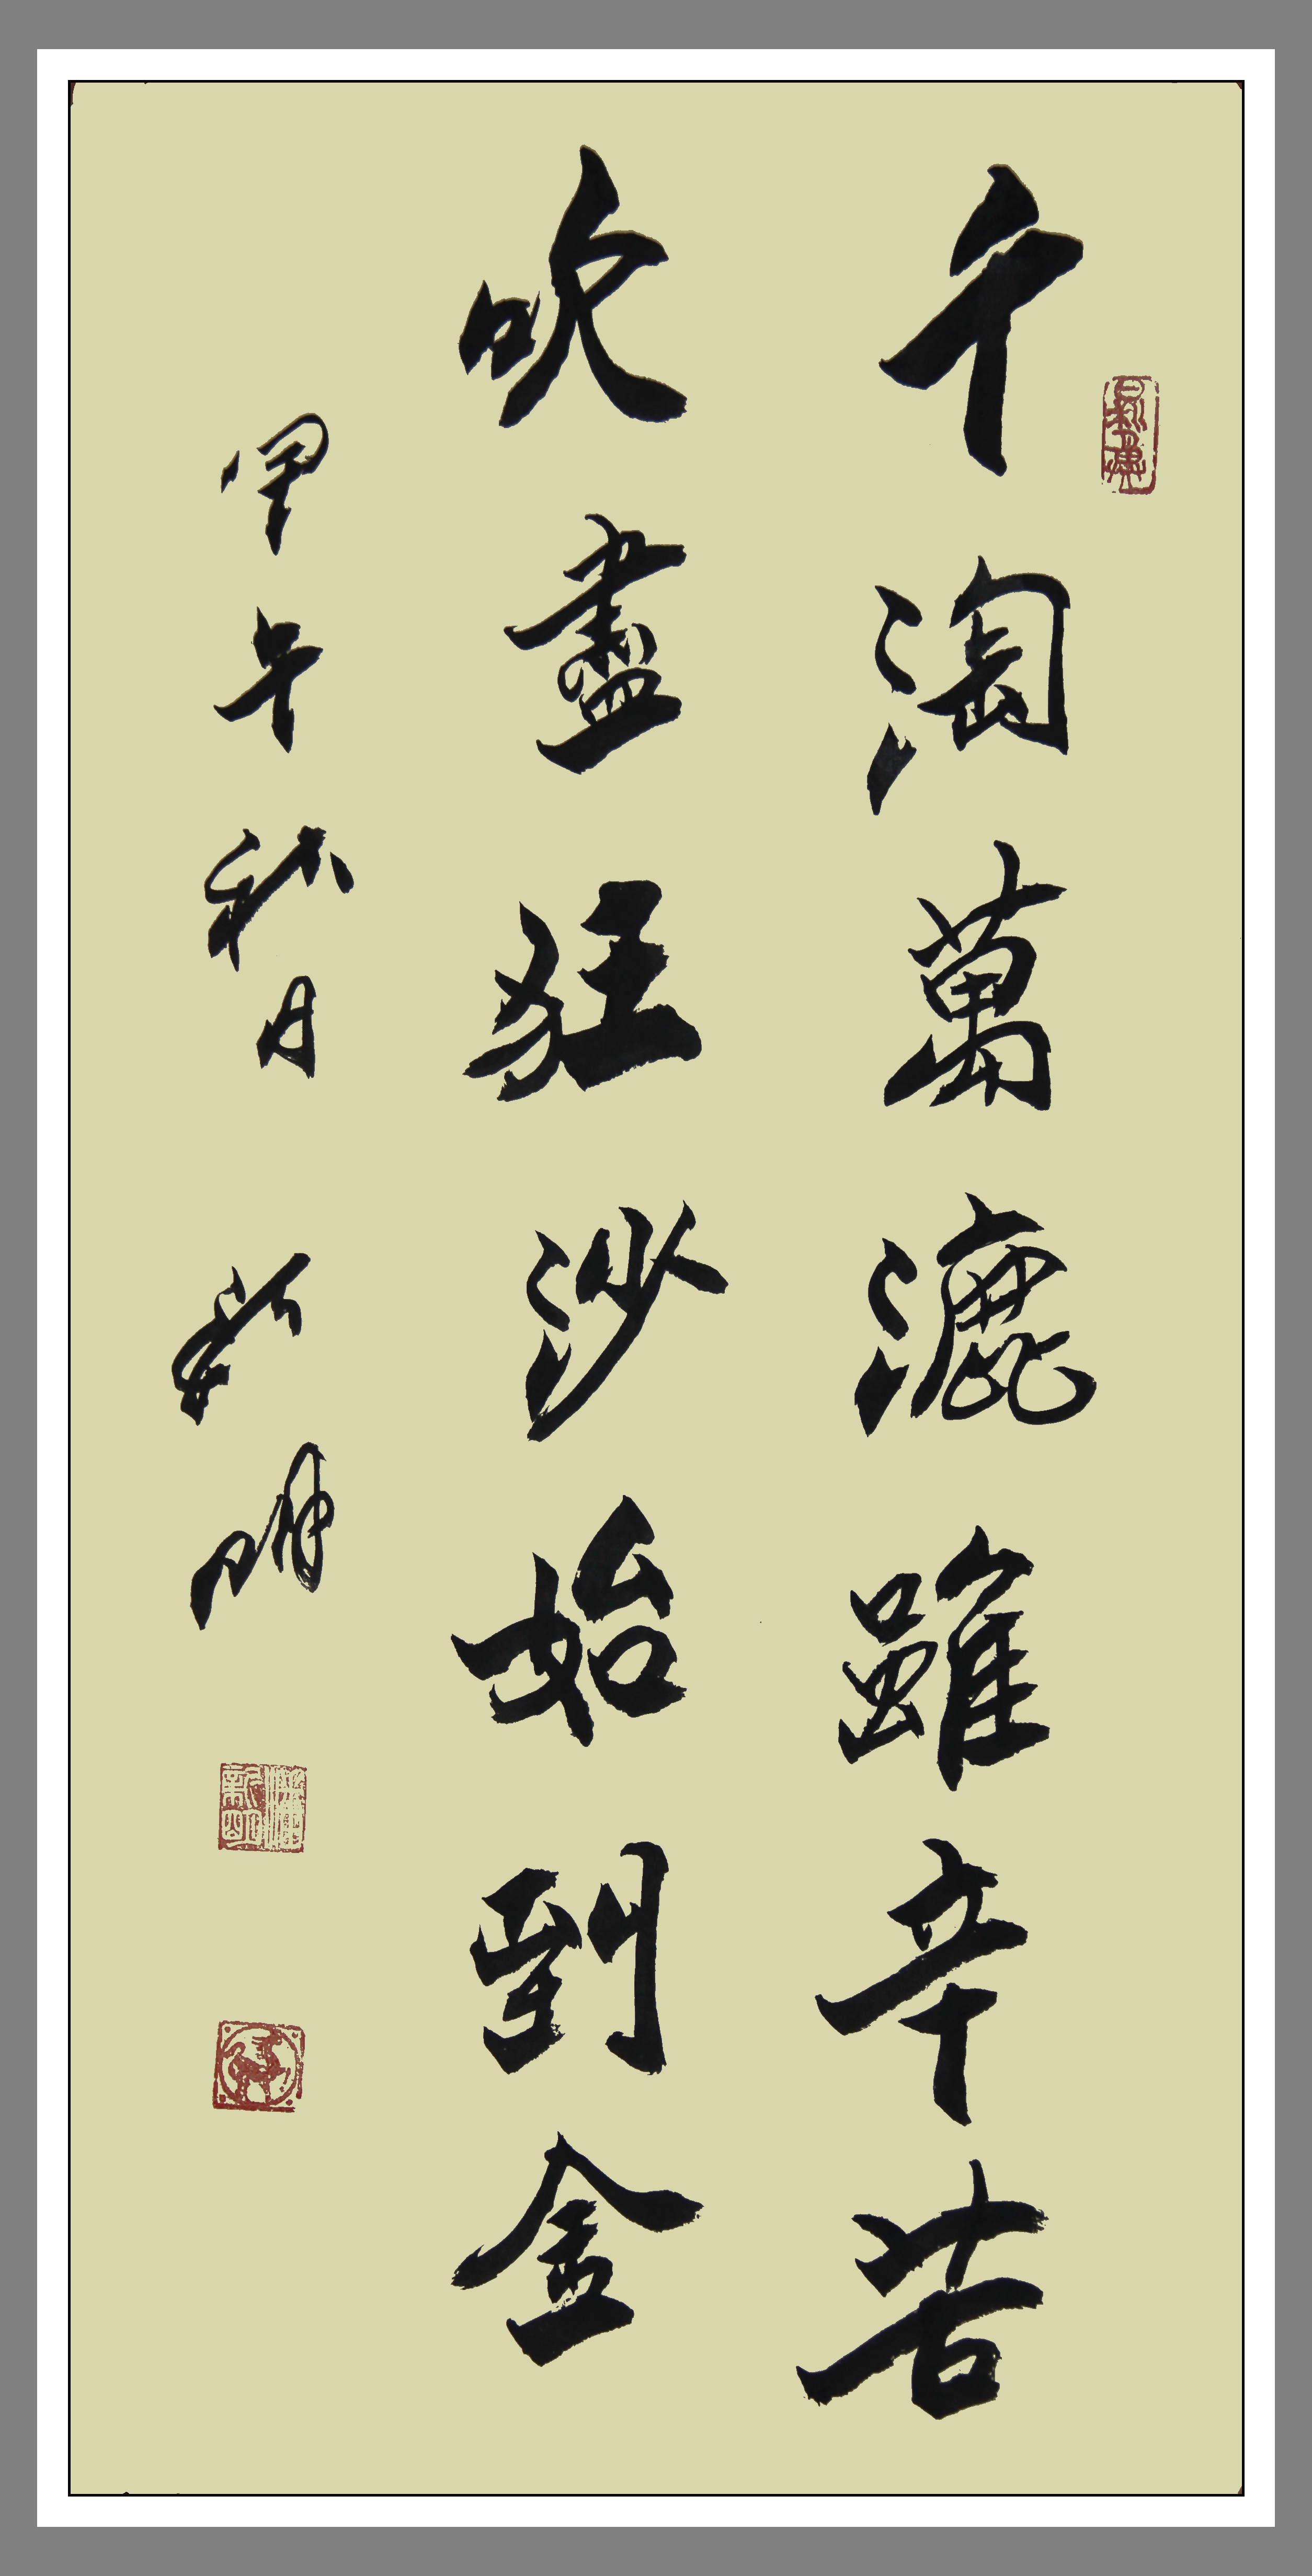 千淘萬漉雖辛苦
吹盡狂沙始到金
甲午秋月 新明